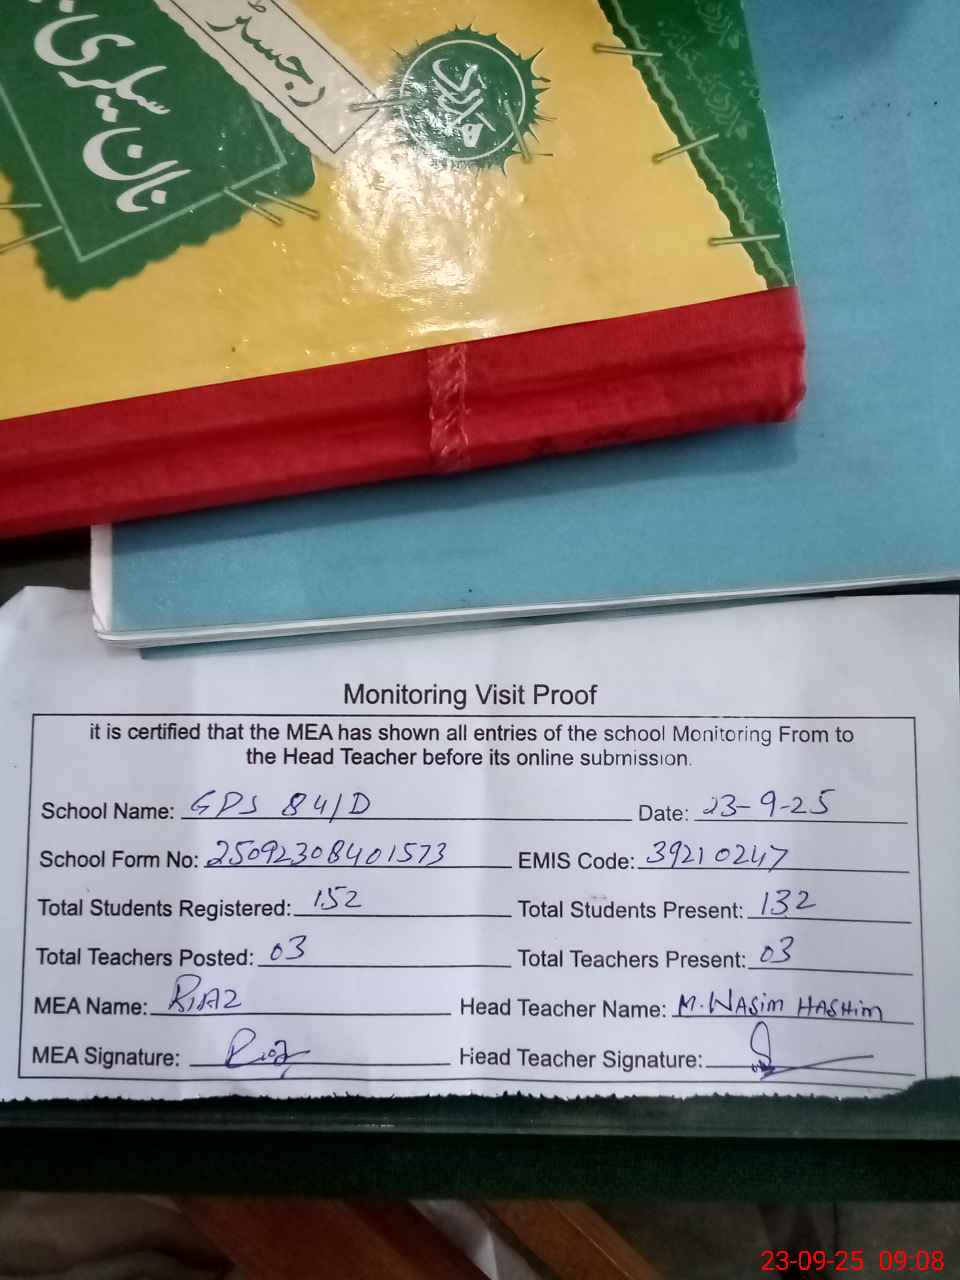 نان سیلری
رجسٹر
Monitoring Visit Proof
it is certified that the MEA has shown all entries of the school Monitoring From to
the Head Teacher before its online submission.
School Name: GPS 84/D Date: 23-9-25
School Form No: 25092308401573 EMIS Code: 39210247
Total Students Registered: 152 Total Students Present: 132
Total Teachers Posted: 03 Total Teachers Present: 03
MEA Name: RIAZ Head Teacher Name: M. WASIM HASHIM
MEA Signature: Riaz Head Teacher Signature:
23-09-25 09:08